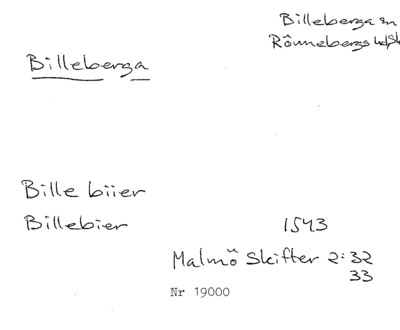 Billeberga sn
Rönnebergs hd
Billeberga
Bille biier
Billebier 1543
Malmö Skifter 2:32
33
Nr 19000